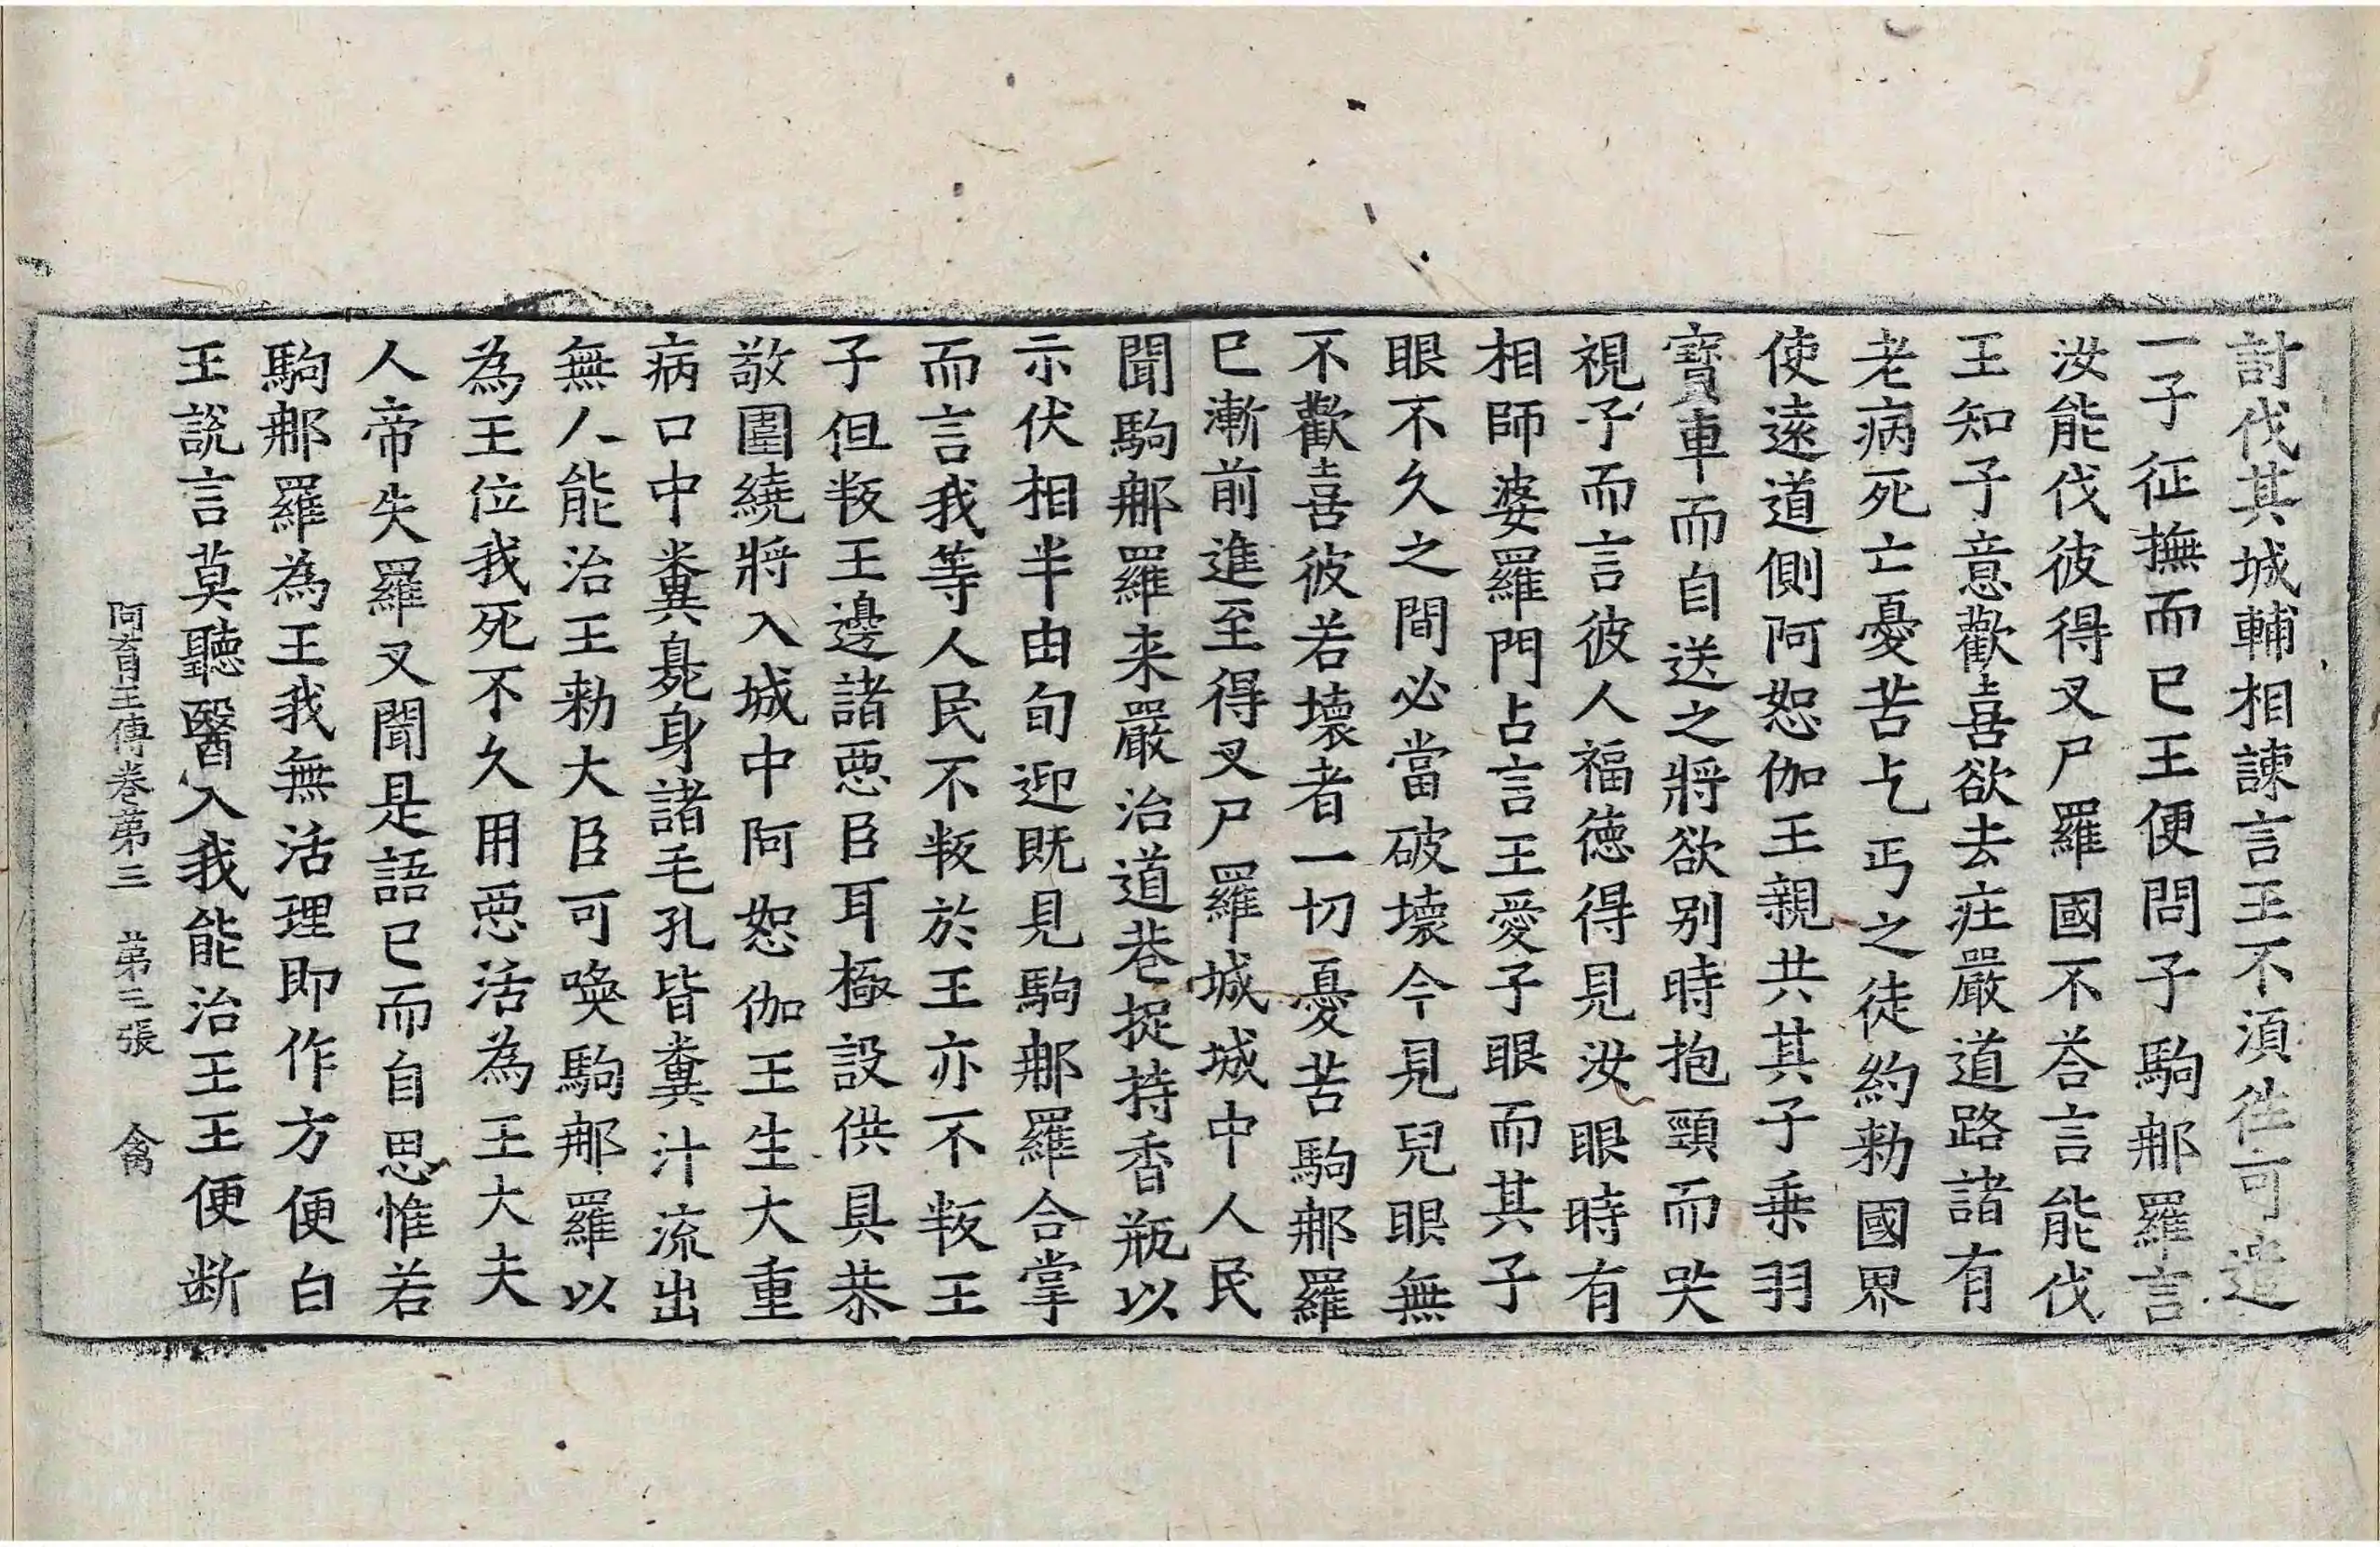 討伐其城輔相諫言王不湏徃可遣
一子征撫而已王便問子駒那羅言
汝能伐彼得叉尸羅國不荅言能伐
王知子意歡喜欲去莊嚴道路諸有
老病死亡憂苦乞丐之徒約勑國界
使遠道側阿恕伽王親共其子乗羽
寶車而自送之將欲别時抱頸而哭
視子而言彼人福徳得見汝眼時有
相師婆羅門占言王愛子眼而其子
眼不久之間必當破壊今見兒眼無
不歡喜彼若壊者一切憂苦駒那羅
已漸前進至得叉尸羅城城中人民
聞駒那羅来嚴治道巷捉持香瓶以
示伏相半由旬迎既見駒那羅合掌
而言我等人民不叛於王亦不叛王
子但叛王邊諸惡臣耳極設供具恭
敬圍繞將入城中阿恕伽王生大重
病口中糞臰身諸毛孔皆糞汁流出
無人能治王勑大臣可喚駒那羅以
為王位我死不久用惡活為王大夫
人帝失羅叉聞是語已而自思惟若
駒那羅為王我無活理即作方便白
王說言莫聽醫入我能治王王便断
阿育王傳卷第三　第三張　禽